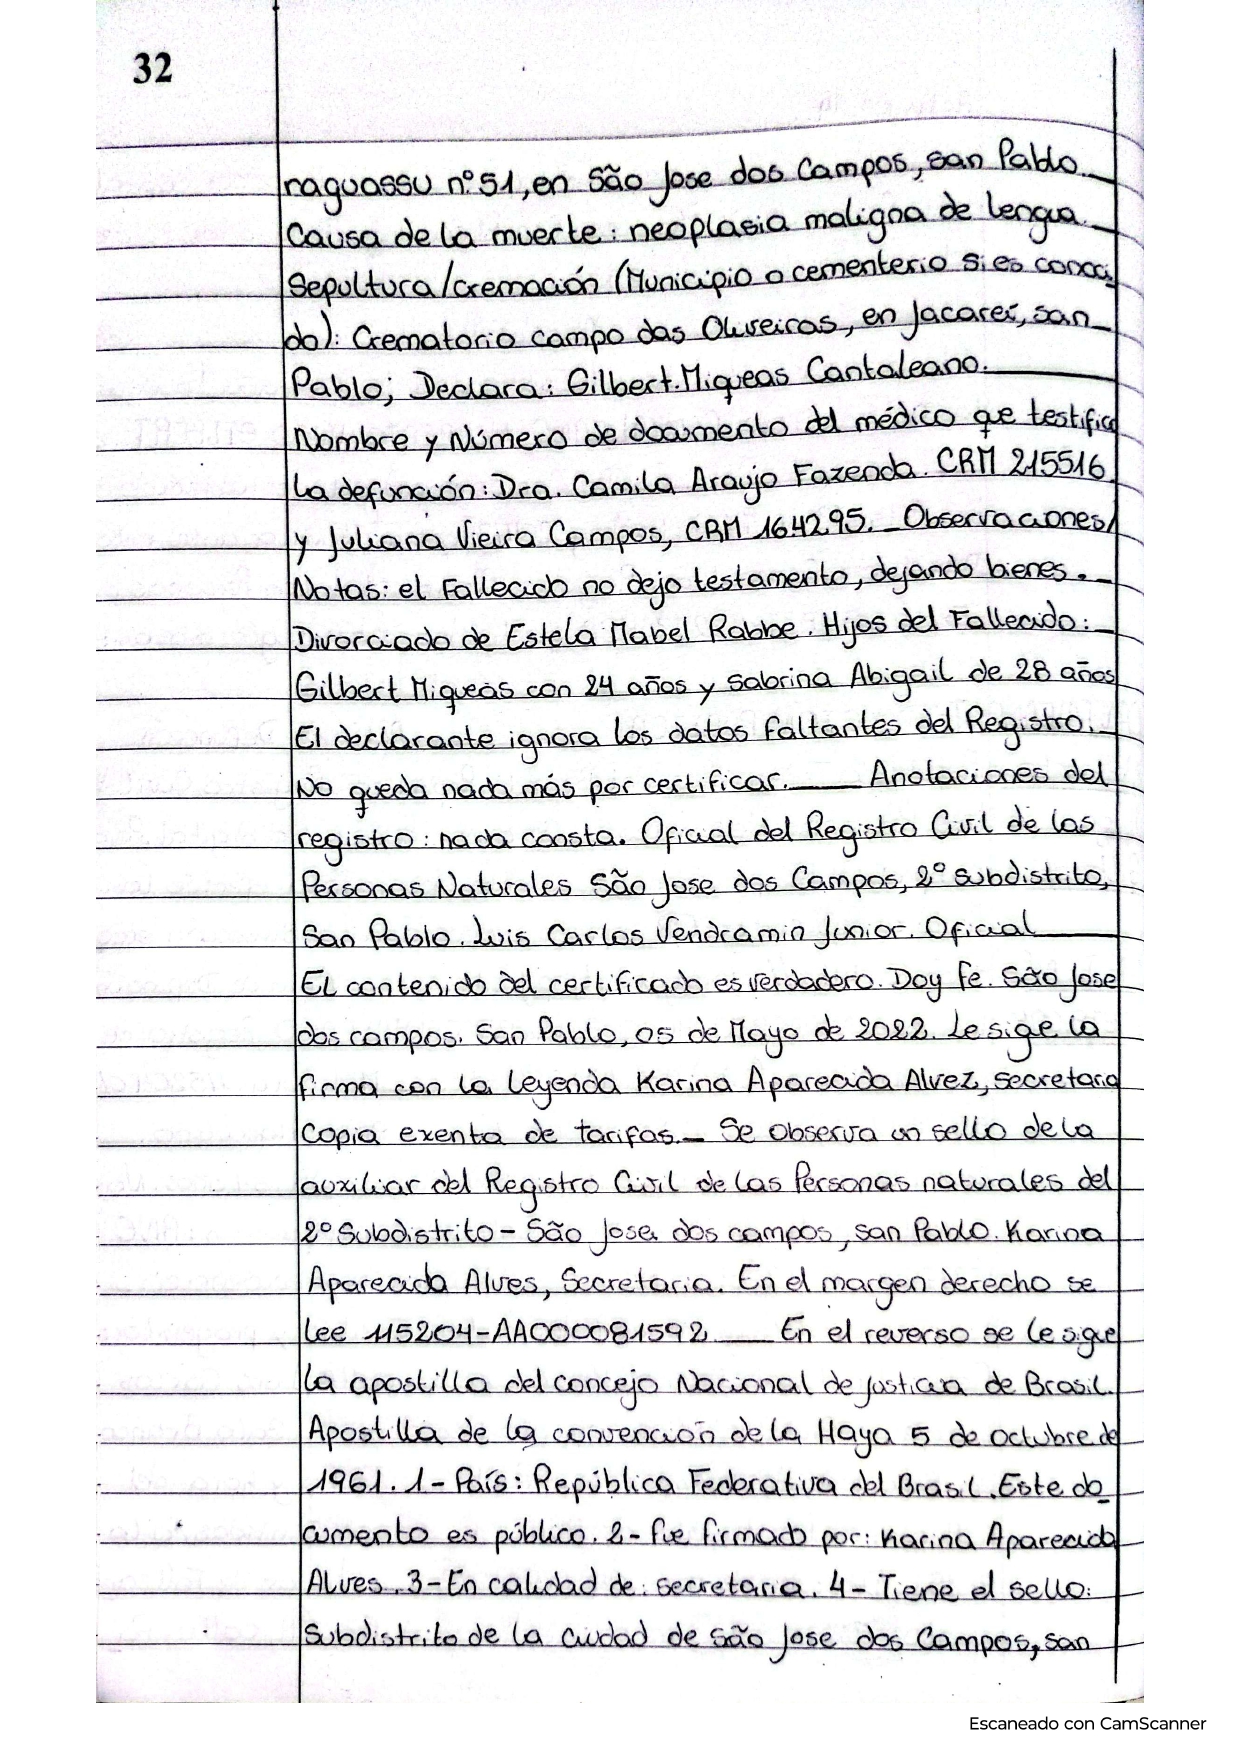 32
raguassu nº 51, en São Jose dos Campos, san Pablo
Causa de la muerte: neoplasia maligna de lengua
Sepultura/cremación (Municipio o cementerio si es conoci
do): Crematorio campo das Oliveiras, en Jacareí, san
Pablo; Declara: Gilbert Miqueas Cantaleano.
Nombre y Número de documento del médico que testifica
la defunción: Dra. Camila Araujo Fazenda. CRM 215516
y Juliana Vieira Campos, CRM 164295. _ Observaciones/
Notas: el Fallecido no dejo testamento, dejando bienes.
Divorciado de Estela Mabel Rabbe. Hijos del Fallecido:
Gilbert Miqueas con 24 años y Sabrina Abigail de 28 años
El declarante ignora los datos faltantes del Registro.
No queda nada más por certificar. ___ Anotaciones del
registro: nada consta. Oficial del Registro Civil de las
Personas Naturales São Jose dos Campos, 2º subdistrito,
San Pablo. Luis Carlos Vendramin Junior. Oficial
El contenido del certificado es verdadero. Doy fe. São Jose
dos campos. San Pablo, 05 de Mayo de 2022. Le sige la
firma con la leyenda Karina Aparecida Alvez, secretaria
Copia exenta de tarifas._ Se observa un sello de la
auxiliar del Registro Civil de las Personas naturales del
2º Subdistrito - São Jose dos campos, san Pablo. Karina
Aparecida Alves, Secretaria. En el margen derecho se
lee 115204-AA000081592 ___ En el reverso se le sigue
la apostilla del concejo Nacional de justicia de Brasil.
Apostilla de la convención de la Haya 5 de octubre de
1961. 1- País: República Federativa del Brasil. Este do_
cumento es público. 2- fue firmado por: Karina Aparecida
Alves. 3- En calidad de: secretaria. 4- Tiene el sello:
Subdistrito de la ciudad de São Jose dos Campos, san
Escaneado con CamScanner